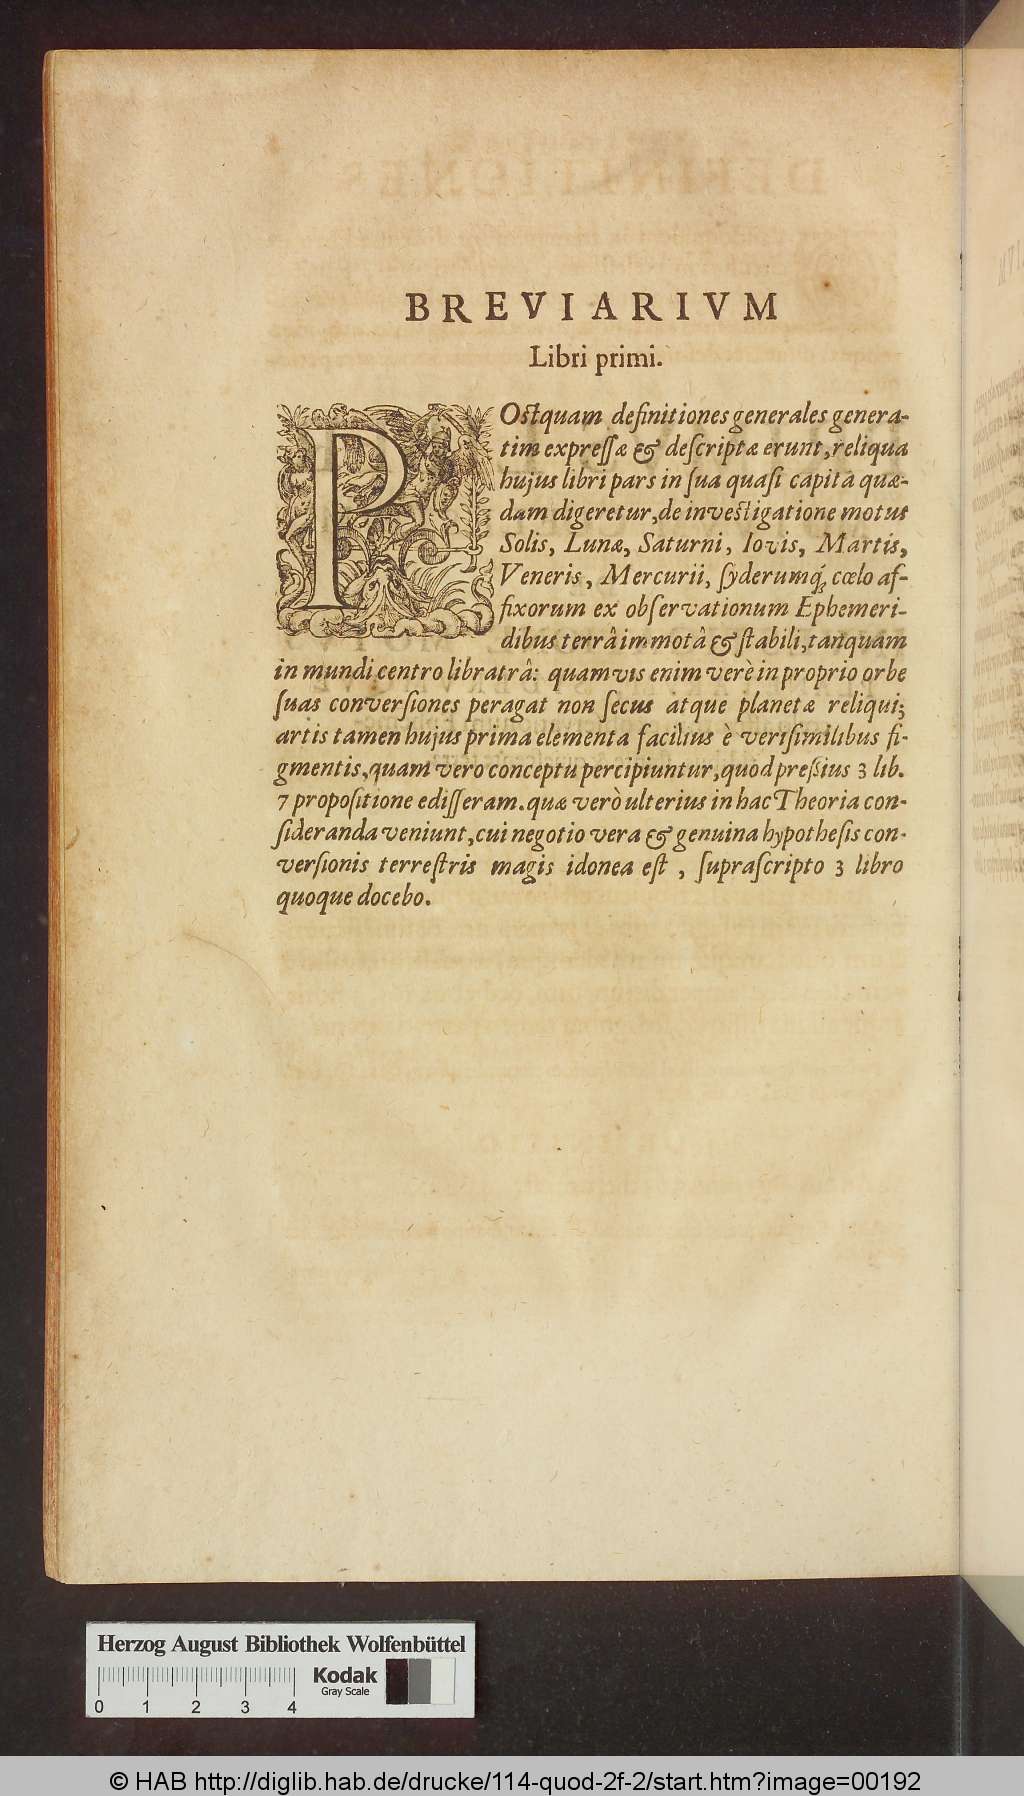 BREVIARIVM
Libri primi.
POstquam definitiones generales genera-
tim expreſſæ & deſcriptæ erunt, reliqua
hujus libri pars in ſua quaſi capita quæ-
dam digeretur, de inveſtigatione motus
Solis, Lunæ, Saturni, Iovis, Martis,
Veneris, Mercurii, ſyderumq́; cœlo af-
fixorum ex obſervationum Ephemeri-
dibus terrâ immotâ & ſtabili, tanquam
in mundi centro libratrâ: quamvis enim verè in proprio orbe
ſuas converſiones peragat non ſecus atque planetæ reliqui;
artis tamen hujus prima elementa facilius è veriſimilibus fi-
gmentis, quam vero conceptu percipiuntur, quod preſſius 3 lib.
7 propoſitione ediſſeram. quæ verò ulterius in hac Theoria con-
ſideranda veniunt, cui negotio vera & genuina hypotheſis con-
verſionis terreſtris magis idonea eſt, ſupraſcripto 3 libro
quoque docebo.
Herzog August Bibliothek Wolfenbüttel
Kodak
Gray Scale
0 1 2 3 4
© HAB http://diglib.hab.de/drucke/114-quod-2f-2/start.htm?image=00192